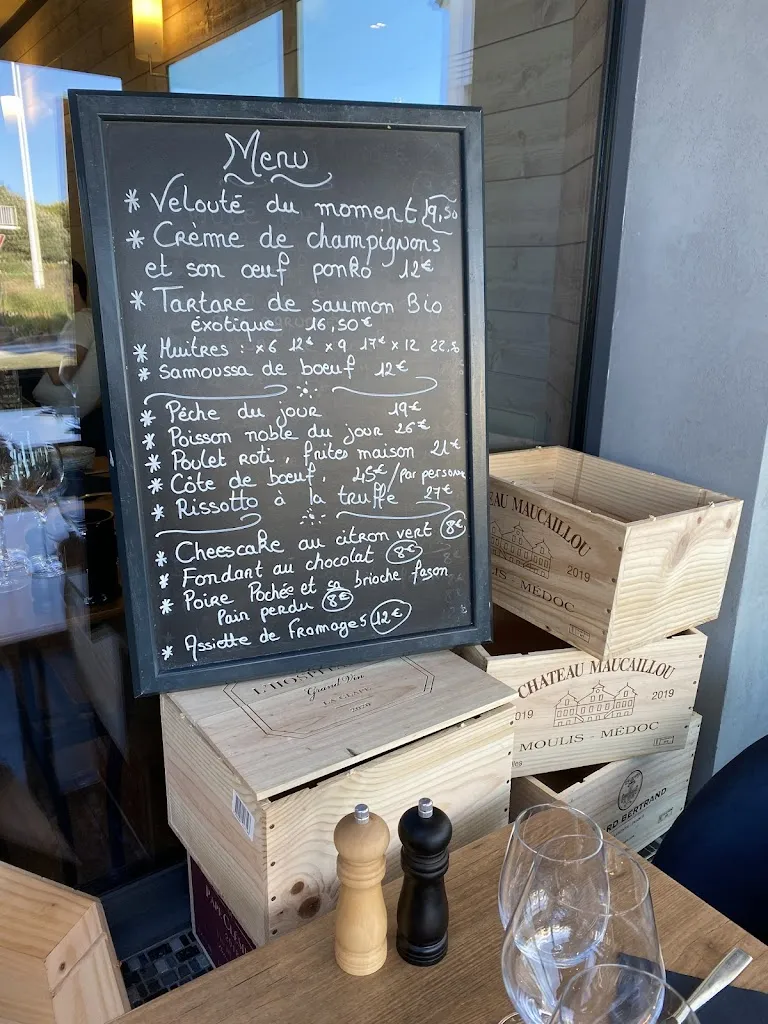 Menu
* Velouté du moment 9,50
* Crème de champignons
et son œuf ponko 12€
* Tartare de saumon Bio
éxotique 16,50€
* Huitres : x6 12€ x9 17€ x12 22,50
* Samoussa de boeuf 12€
* Pêche du jour 19€
* Poisson noble du jour 26€
* Poulet roti, frites maison 21€
* Côte de bœuf, 45€/par personne
* Rissotto à la truffe 27€
* Cheescake au citron vert 8€
* Fondant au chocolat 8€
* Poire Pochée et sa brioche façon
Pain perdu 8€
* Assiette de fromages 12€
EAU MAUCAILLOU
2019
IS - MÉDOC
CHÂTEAU MAUCAILLOU
019
2019
MOULIS - MÉDOC
RD BERTRAND
L'HOSPI
Grand Vin
LA CLAPE
2020